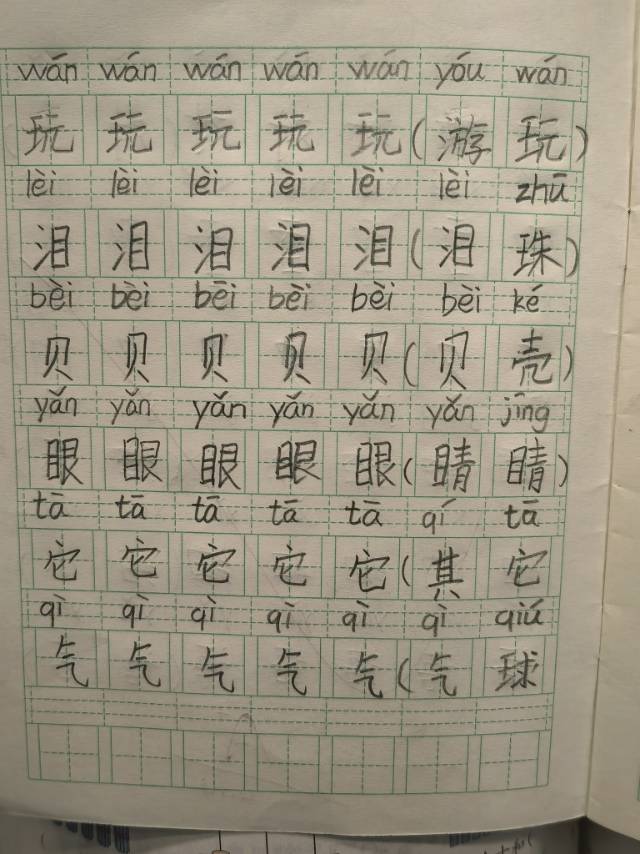 wán wán wán wán wán yóu wán
玩 玩 玩 玩 玩 ( 游 玩 )
lèi lèi lèi lèi lèi lèi zhū
泪 泪 泪 泪 泪 ( 泪 珠 )
bèi bèi bēi bèi bèi bèi ké
贝 贝 贝 贝 贝 ( 贝 壳 )
yǎn yǎn yǎn yǎn yǎn yǎn jīng
眼 眼 眼 眼 眼 ( 睛 睛 )
tā tā tā tā tā qí tā
它 它 它 它 它 ( 其 它
qì qì qì qì qì qì qiú
气 气 气 气 气 ( 气 球